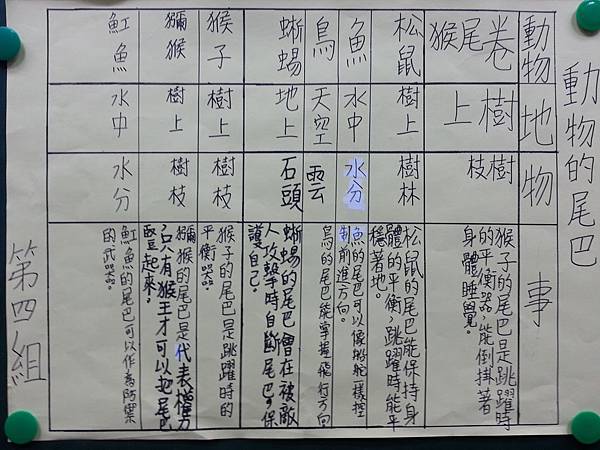 動物的尾巴
動物
地
物
事
卷尾猴
樹上
樹枝
猴子的尾巴是跳躍時
的平衡器,能倒掛著
身體睡覺。
松鼠
樹上
樹林
松鼠的尾巴能保持身
體的平衡,跳躍時能平
穩著地。
魚
水中
水分
魚的尾巴可以像船舵一樣控
制前進方向。
鳥
天空
雲
鳥的尾巴能掌握飛行方向。
蜥蜴
地上
石頭
蜥蜴的尾巴會在被敵
人攻擊時自斷尾巴,保
護自己。
猴子
樹上
樹枝
猴子的尾巴是跳躍時的
平衡器。
獼猴
樹上
樹枝
獼猴的尾巴是代表權力
只有猴王才可以把尾巴
豎起來。
魟魚
水中
水分
魟魚的尾巴可以作為防禦
的武器。
第四組